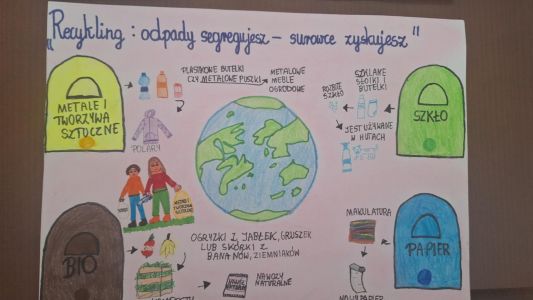 "Recykling: odpady segregujesz – surowce zyskujesz"
METALE I
TWORZYWA
SZTUCZNE
PLASTIKOWE BUTELKI
CZY METALOWE PUSZKI
METALOWE
MEBLE
OGRODOWE
POLARY
ROZBITE
SZKŁO
SZKLANE
SŁOIKI I
BUTELKI
JEST UŻYWANE
W HUTACH
SZKŁO
BIO
OGRYZKI Z JABŁEK, GRUSZEK
LUB SKÓRKI Z
BANANÓW, ZIEMNIAKÓW
NAWOZY
NATURALNE
MAKULATURA
PAPIER